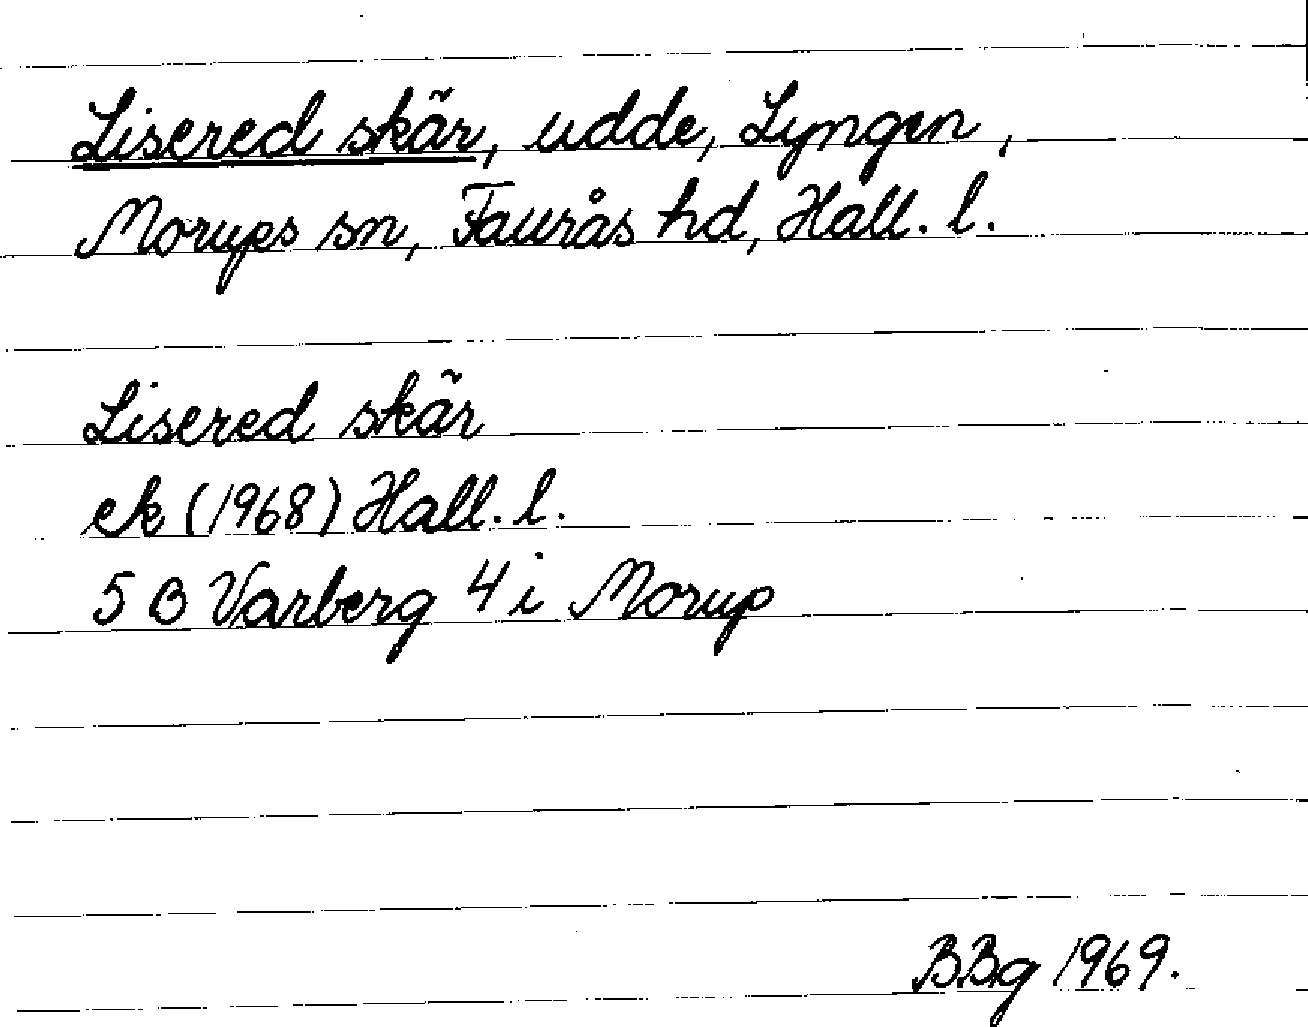 Lisered skär, udde, Lyngen,
Morups sn, Faurås hd, Hall. l.
Lisered skär
ek (1968) Hall. l.
5 B Varberg 4 i Morup
BBg 1969.